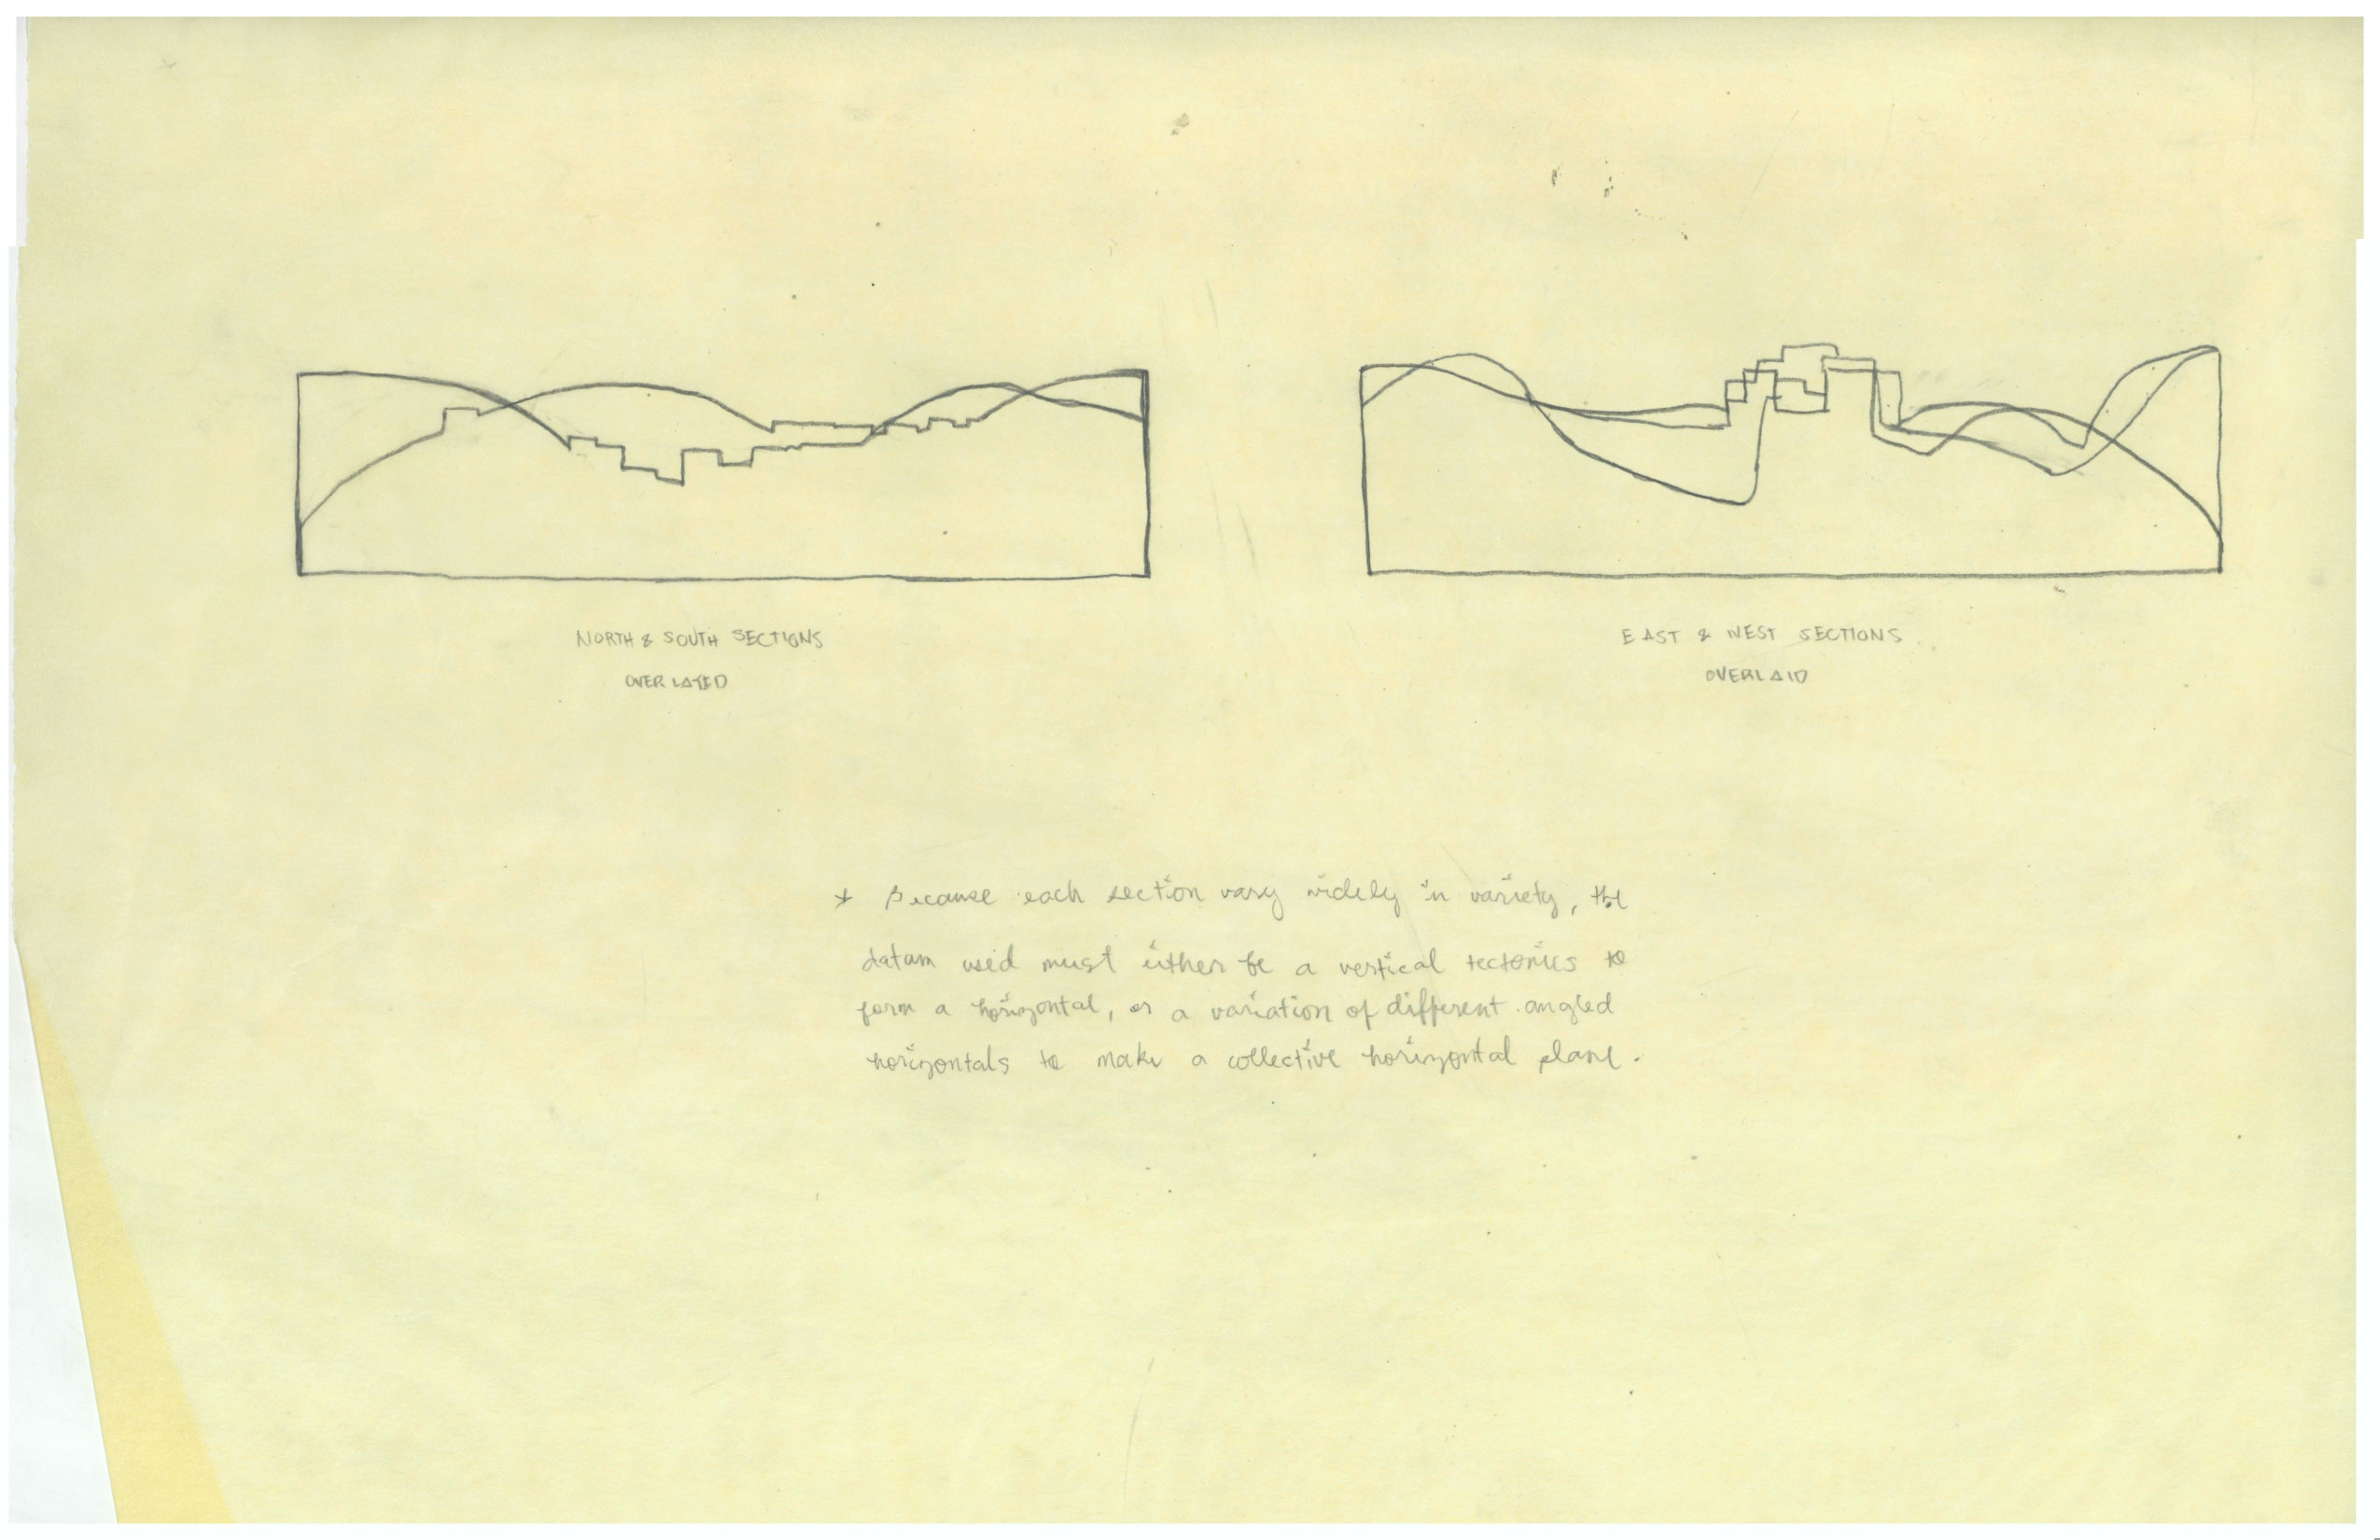 NORTH & SOUTH SECTIONS
OVERLAYED
EAST & WEST SECTIONS
OVERLAID
* Because each section vary widely in variety, the
datum used must either be a vertical tectonics to
form a horizontal, or a variation of different angled
horizontals to make a collective horizontal plane.